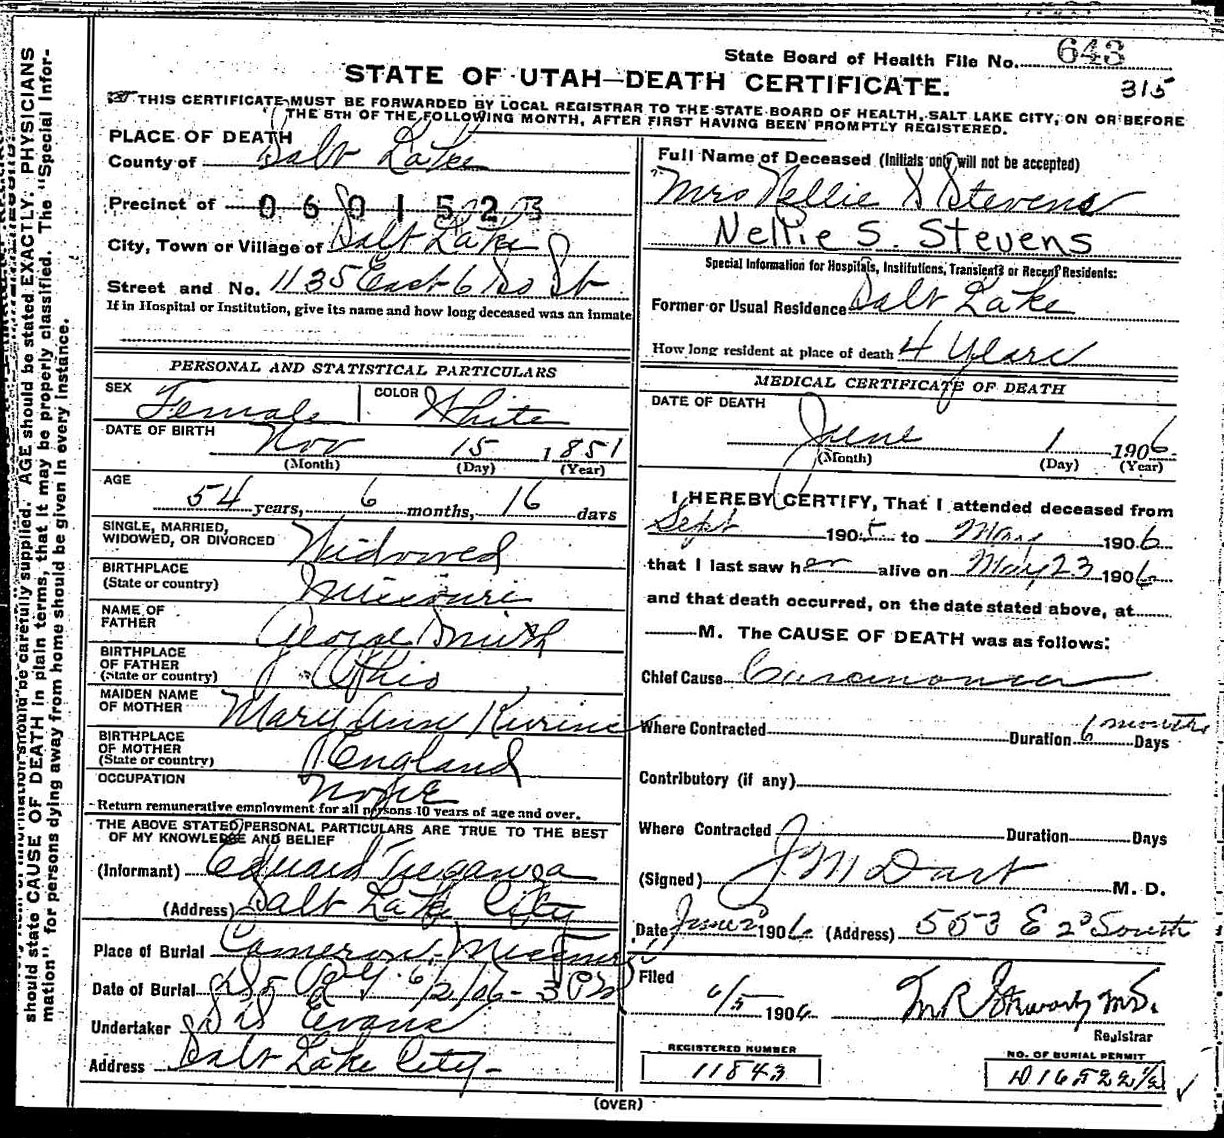 State Board of Health File No. 643
315
STATE OF UTAH—DEATH CERTIFICATE.
THIS CERTIFICATE MUST BE FORWARDED BY LOCAL REGISTRAR TO THE STATE BOARD OF HEALTH, SALT LAKE CITY, ON OR BEFORE
THE 5TH OF THE FOLLOWING MONTH, AFTER FIRST HAVING BEEN PROMPTLY REGISTERED.
PLACE OF DEATH
County of Salt Lake
Precinct of 0601523
City, Town or Village of Salt Lake
Street and No. 1135 East 6 So St
If in Hospital or Institution, give its name and how long deceased was an inmate
PERSONAL AND STATISTICAL PARTICULARS
SEX Female COLOR White
DATE OF BIRTH Nov 15 1851
(Month) (Day) (Year)
AGE
54 years, 6 months, 16 days
SINGLE, MARRIED,
WIDOWED, OR DIVORCED Widowed
BIRTHPLACE
(State or country) Missouri
NAME OF
FATHER George Smith
BIRTHPLACE
OF FATHER
(State or country) Ohio
MAIDEN NAME
OF MOTHER Mary Ann
BIRTHPLACE
OF MOTHER
(State or country) England
OCCUPATION None
Return remunerative employment for all persons 10 years of age and over.
THE ABOVE STATED PERSONAL PARTICULARS ARE TRUE TO THE BEST
OF MY KNOWLEDGE AND BELIEF
(Informant) Eduard
(Address) Salt Lake City
Place of Burial Cameron, Missouri
Date of Burial 6/2/06 - 3 Pm
Undertaker Evans
Address Salt Lake City -
Full Name of Deceased (Initials only will not be accepted)
Mrs Nellie S Stevens
Nellie S. Stevens
Special Information for Hospitals, Institutions, Transients or Recent Residents:
Former or Usual Residence Salt Lake
How long resident at place of death 4 Years
MEDICAL CERTIFICATE OF DEATH
DATE OF DEATH
June 1 1906
(Month) (Day) (Year)
I HEREBY CERTIFY, That I attended deceased from
Sept 1905 to May 1906
that I last saw her alive on May 23 1906
and that death occurred, on the date stated above, at
M. The CAUSE OF DEATH was as follows:
Chief Cause Carcinoma
Where Contracted Duration 6 months Days
Contributory (if any)
Where Contracted Duration Days
(Signed) J M Dart M. D.
Date June 2 1906 (Address) 553 E 2d South
Filed
6/5 1906
Registrar
REGISTERED NUMBER
11843
NO. OF BURIAL PERMIT
D16522½
(OVER)
should be carefully supplied. AGE should be stated EXACTLY. PHYSICIANS
should state CAUSE OF DEATH in plain terms, that it may be properly classified. The "Special Infor-
mation" for persons dying away from home should be given in every instance.